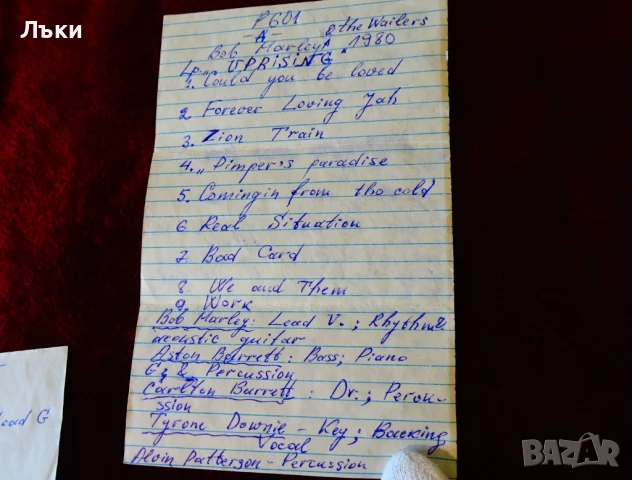 Лъки
P601
-A-
Bob Marley & the Wailers
Lp "UPRISING" 1980
1. Could you be loved
2 Forever Loving Jah
3. Zion Train
4. „Pimper's paradise
5. Comingin from tho cold
6 Real Situation
7. Bad Card
8. We and Them
9. Work
Bob Marley: Lead V.; Rhythm &
acoustic guitar
Aston Barrett: Bass; Piano
& Percussion
Carlton Barrett: Dr.; Percu-
ssion
Tyrone Downie - Key; Backing
Vocal
Alvin Patterson - Percussion
Lead G
BAZAR
bazar.bg